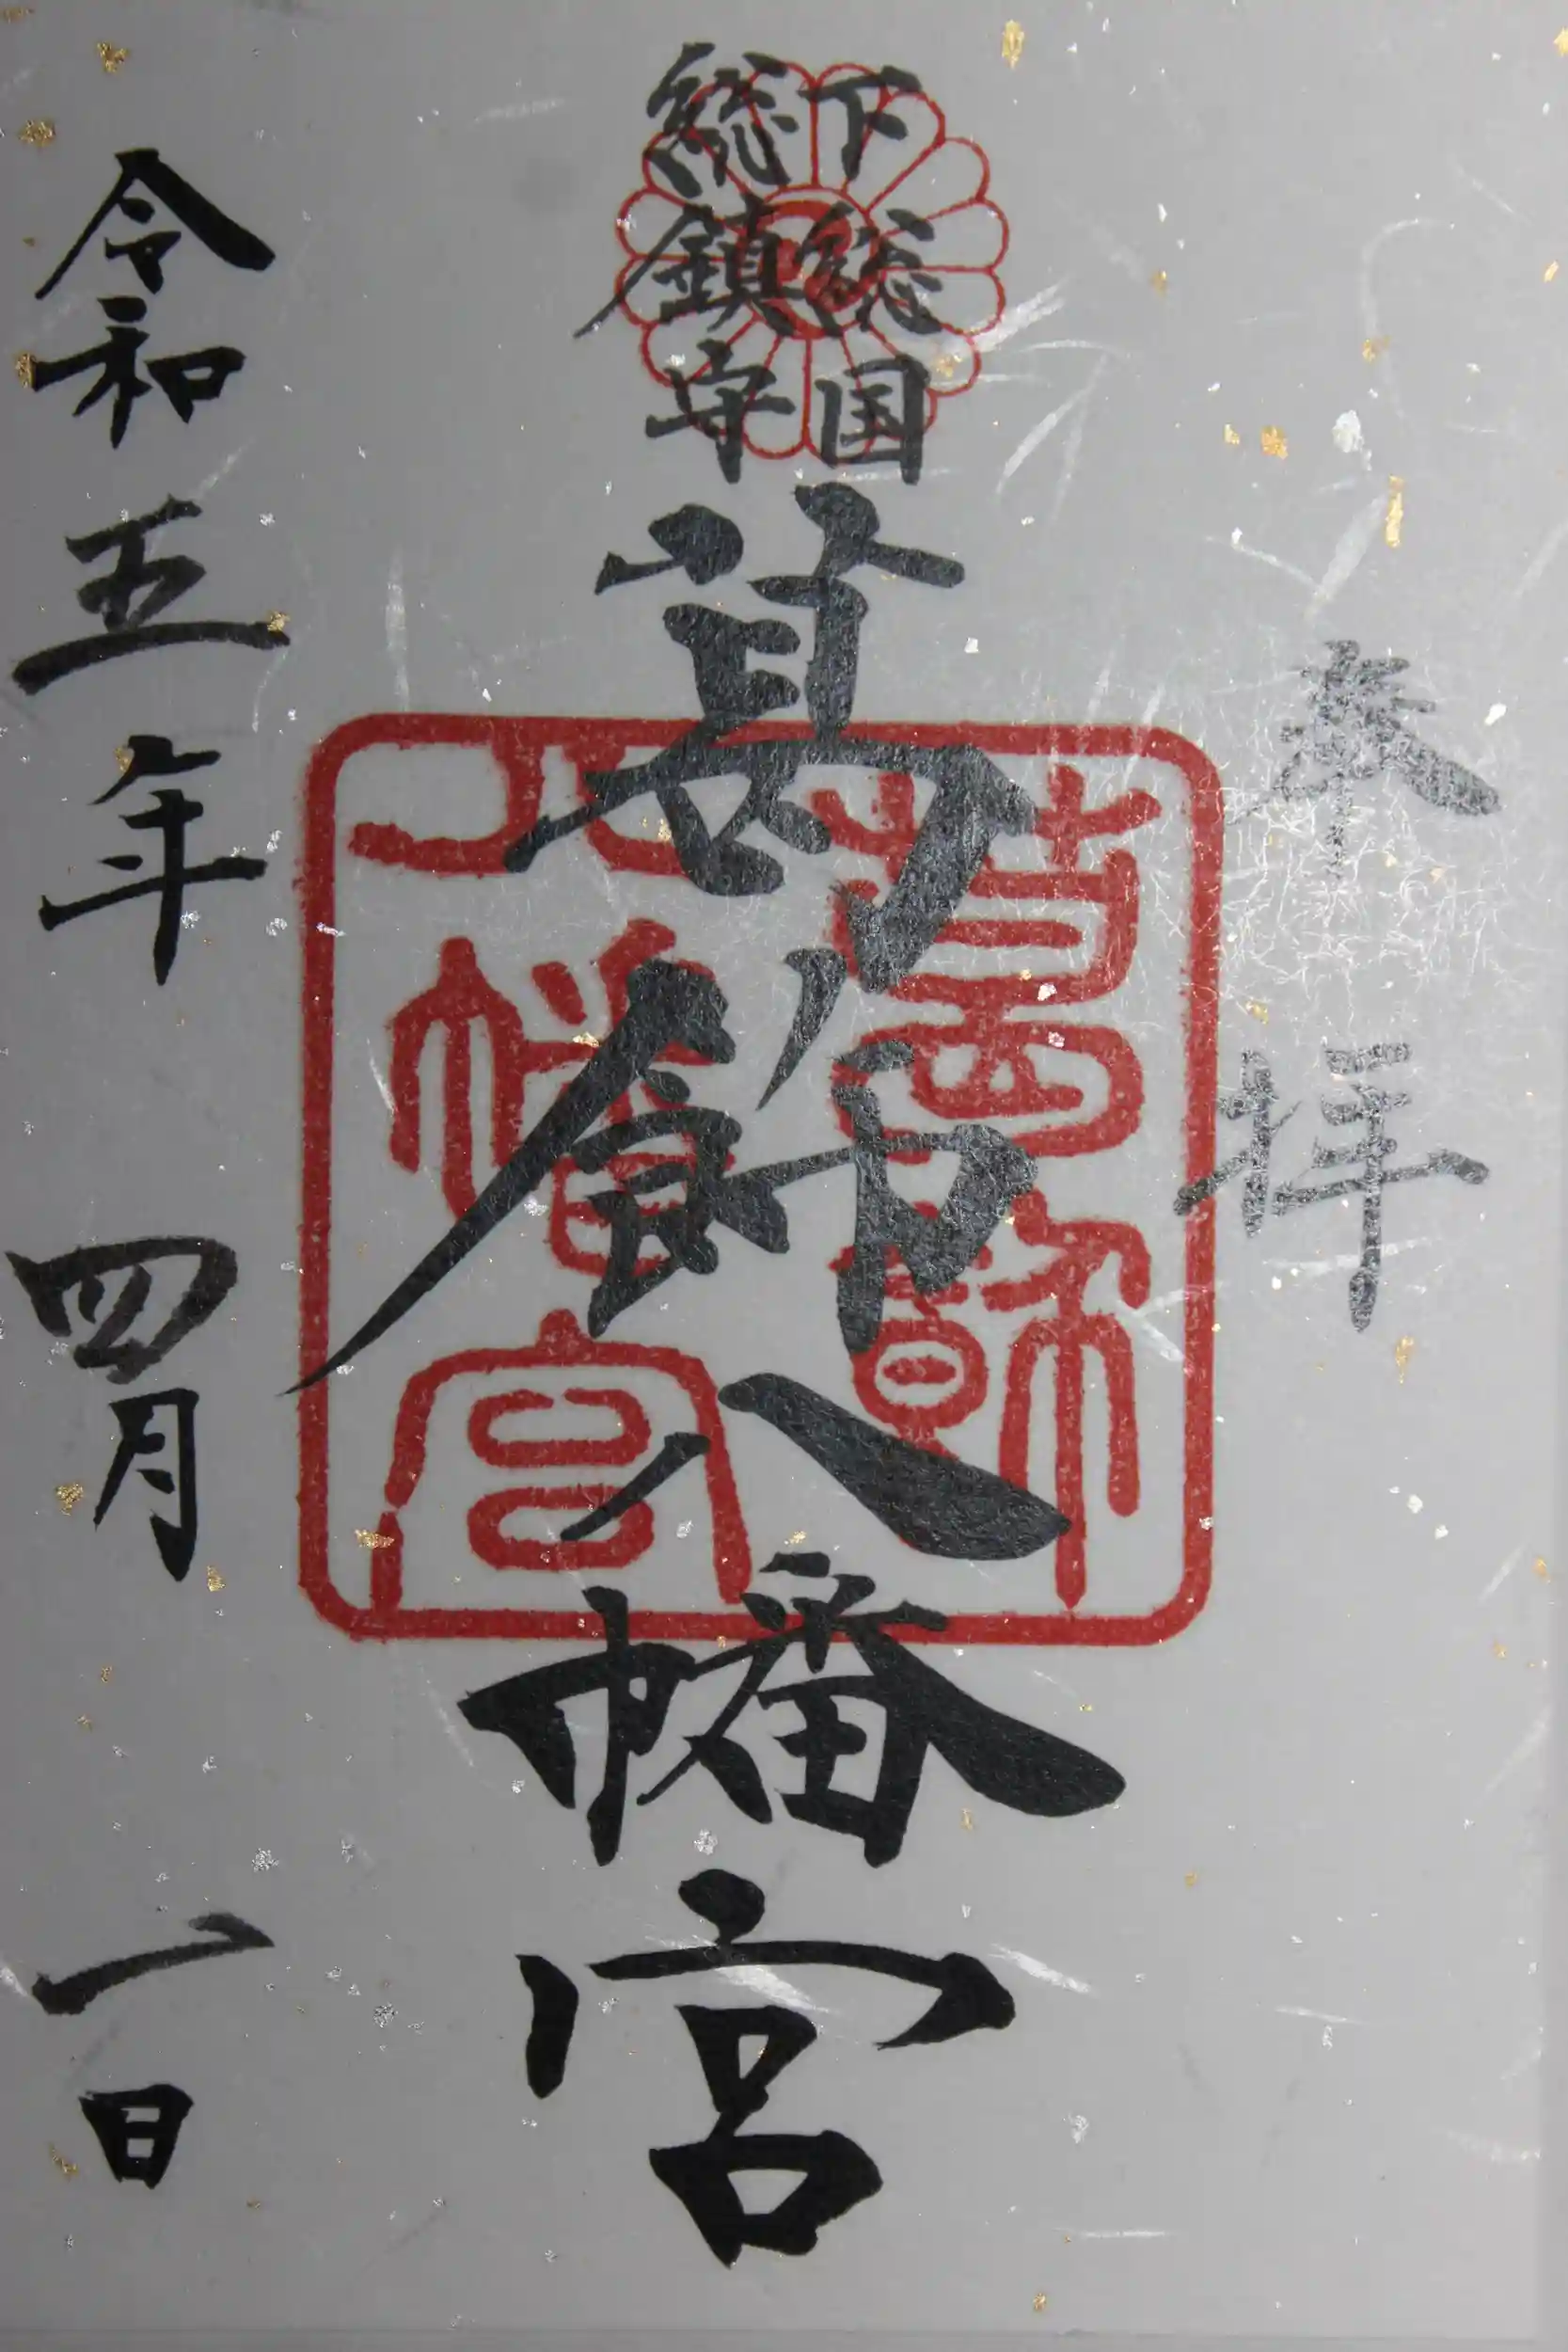 奉拝
下総国
総鎮守
葛飾八幡宮
葛飾
八幡宮
令和五年四月一日